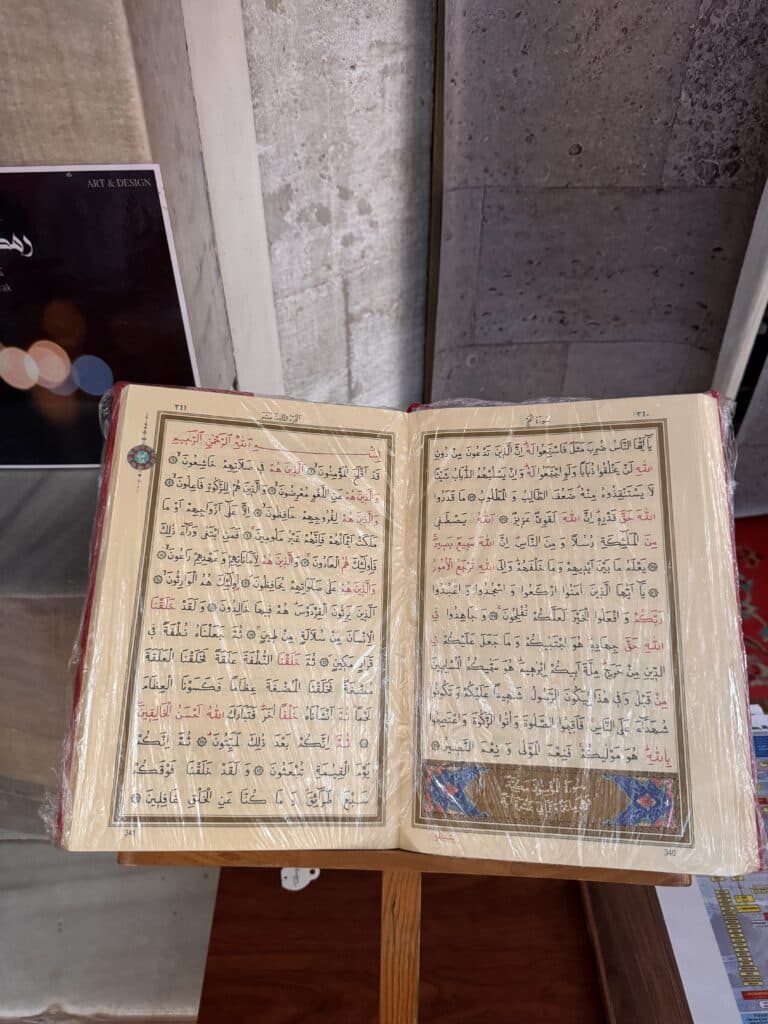 ART & DESIGN
سورة الحج
٣٤٠
يَا أَيُّهَا النَّاسُ ضُرِبَ مَثَلٌ فَاسْتَمِعُوا لَهُ إِنَّ الَّذِينَ تَدْعُونَ مِنْ دُونِ
اللهِ لَنْ يَخْلُقُوا ذُبَابًا وَلَوِ اجْتَمَعُوا لَهُ وَإِنْ يَسْلُبْهُمُ الذُّبَابُ شَيْئًا
لَا يَسْتَنْقِذُوهُ مِنْهُ ضَعُفَ الطَّالِبُ وَالْمَطْلُوبُ ﴿٧٣﴾ مَا قَدَرُوا
اللهَ حَقَّ قَدْرِهِ إِنَّ اللهَ لَقَوِيٌّ عَزِيزٌ ﴿٧٤﴾ اَللهُ يَصْطَفِي
مِنَ الْمَلٰئِكَةِ رُسُلًا وَمِنَ النَّاسِ إِنَّ اللهَ سَمِيعٌ بَصِيرٌ
﴿٧٥﴾ يَعْلَمُ مَا بَيْنَ أَيْدِيهِمْ وَمَا خَلْفَهُمْ وَإِلَى اللهِ تُرْجَعُ الْأُمُورُ
﴿٧٦﴾ يَا أَيُّهَا الَّذِينَ اٰمَنُوا ارْكَعُوا وَاسْجُدُوا وَاعْبُدُوا
رَبَّكُمْ وَافْعَلُوا الْخَيْرَ لَعَلَّكُمْ تُفْلِحُونَ ﴿٧٧﴾ وَجَاهِدُوا فِي
اللهِ حَقَّ جِهَادِهِ هُوَ اجْتَبٰيكُمْ وَمَا جَعَلَ عَلَيْكُمْ فِي
الدِّينِ مِنْ حَرَجٍ مِلَّةَ أَبِيكُمْ إِبْرٰهِيمَ هُوَ سَمّٰيكُمُ الْمُسْلِمِينَ
مِنْ قَبْلُ وَفِي هٰذَا لِيَكُونَ الرَّسُولُ شَهِيدًا عَلَيْكُمْ وَتَكُونُوا
شُهَدَاءَ عَلَى النَّاسِ فَأَقِيمُوا الصَّلٰوةَ وَاٰتُوا الزَّكٰوةَ وَاعْتَصِمُوا
بِاللهِ هُوَ مَوْلٰيكُمْ فَنِعْمَ الْمَوْلٰى وَنِعْمَ النَّصِيرُ ﴿٧٨﴾
سورة المؤمنون مكية
340
٣٤١
بِسْمِ اللهِ الرَّحْمٰنِ الرَّحِيمِ
قَدْ أَفْلَحَ الْمُؤْمِنُونَ ﴿١﴾ اَلَّذِينَ هُمْ فِي صَلَاتِهِمْ خَاشِعُونَ ﴿٢﴾
وَالَّذِينَ هُمْ عَنِ اللَّغْوِ مُعْرِضُونَ ﴿٣﴾ وَالَّذِينَ هُمْ لِلزَّكٰوةِ فَاعِلُونَ ﴿٤﴾
وَالَّذِينَ هُمْ لِفُرُوجِهِمْ حَافِظُونَ ﴿٥﴾ إِلَّا عَلٰى أَزْوَاجِهِمْ أَوْ مَا
مَلَكَتْ أَيْمَانُهُمْ فَإِنَّهُمْ غَيْرُ مَلُومِينَ ﴿٦﴾ فَمَنِ ابْتَغٰى وَرَاءَ ذٰلِكَ
فَأُولٰئِكَ هُمُ الْعَادُونَ ﴿٧﴾ وَالَّذِينَ هُمْ لِأَمَانَاتِهِمْ وَعَهْدِهِمْ رَاعُونَ ﴿٨﴾
وَالَّذِينَ هُمْ عَلٰى صَلَوَاتِهِمْ يُحَافِظُونَ ﴿٩﴾ أُولٰئِكَ هُمُ الْوَارِثُونَ ﴿١٠﴾
اَلَّذِينَ يَرِثُونَ الْفِرْدَوْسَ هُمْ فِيهَا خَالِدُونَ ﴿١١﴾ وَلَقَدْ خَلَقْنَا
الْإِنْسَانَ مِنْ سُلَالَةٍ مِنْ طِينٍ ﴿١٢﴾ ثُمَّ جَعَلْنَاهُ نُطْفَةً فِي
قَرَارٍ مَكِينٍ ﴿١٣﴾ ثُمَّ خَلَقْنَا النُّطْفَةَ عَلَقَةً فَخَلَقْنَا الْعَلَقَةَ
مُضْغَةً فَخَلَقْنَا الْمُضْغَةَ عِظَامًا فَكَسَوْنَا الْعِظَامَ
لَحْمًا ثُمَّ أَنْشَأْنَاهُ خَلْقًا اٰخَرَ فَتَبَارَكَ اللهُ أَحْسَنُ الْخَالِقِينَ
﴿١٤﴾ ثُمَّ إِنَّكُمْ بَعْدَ ذٰلِكَ لَمَيِّتُونَ ﴿١٥﴾ ثُمَّ إِنَّكُمْ
يَوْمَ الْقِيٰمَةِ تُبْعَثُونَ ﴿١٦﴾ وَلَقَدْ خَلَقْنَا فَوْقَكُمْ
سَبْعَ طَرَائِقَ وَمَا كُنَّا عَنِ الْخَلْقِ غَافِلِينَ ﴿١٧﴾
341